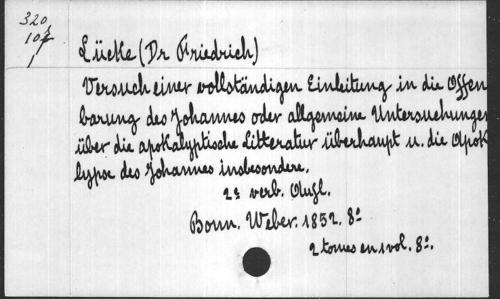 320
10
1
Lücke (Dr Friedrich)
Versuch einer vollständigen Einleitung in die Offen
barung des Johannes oder allgemeine Untersuchungen
über die apokalyptische Litteratur überhaupt u. die Apok
lypse des Johannes insbesondere.
2e verb. Aufl.
Bonn. Weber. 1852. 8o.
2 tomes en 1 vol. 8o.